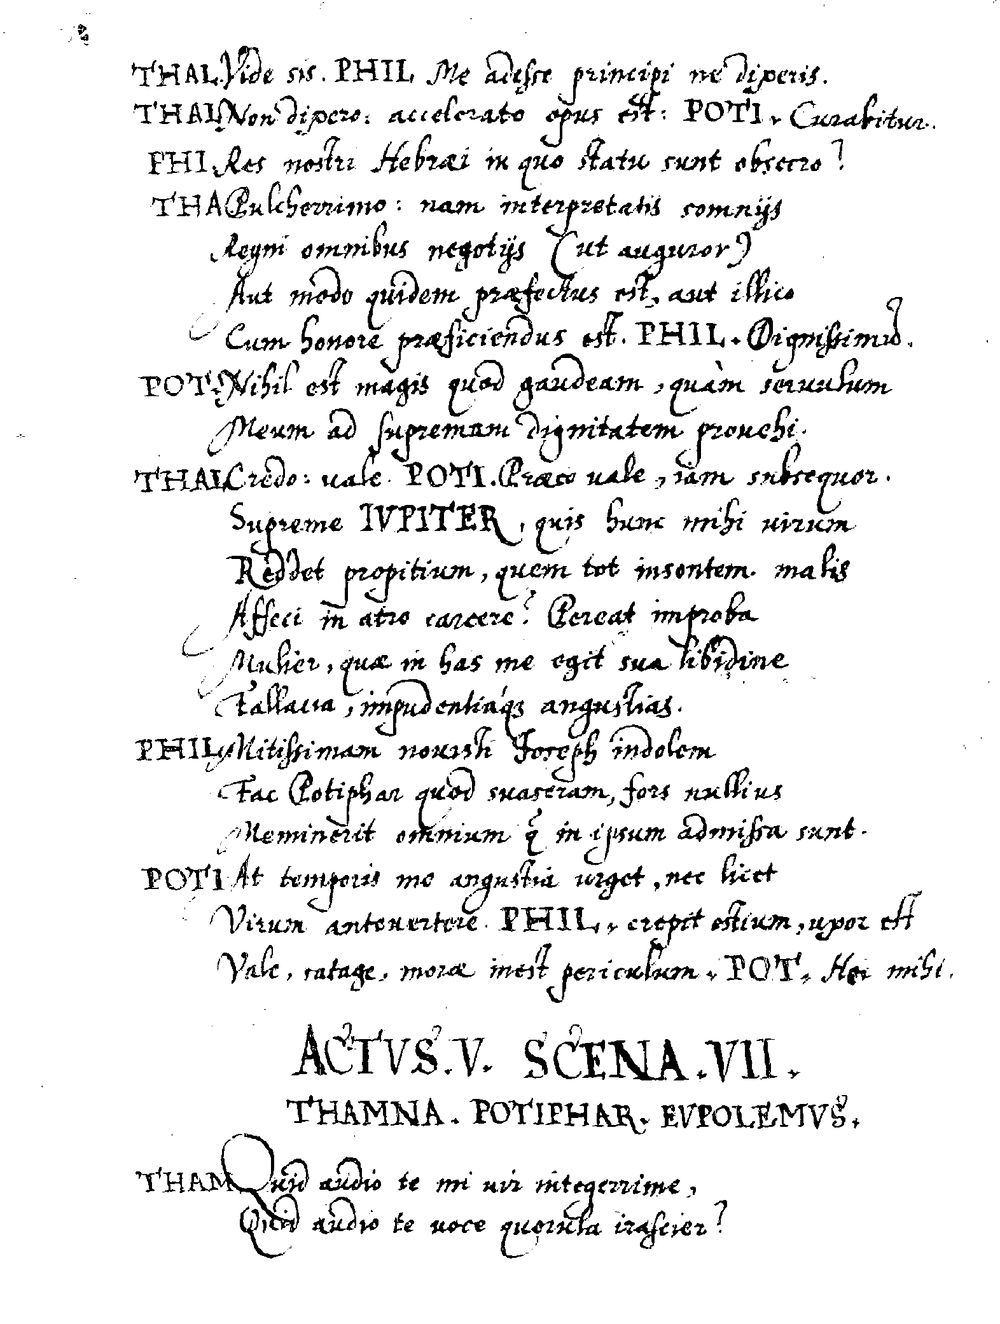 THAL. Vide sis. PHIL. Me adesse principi ne dixeris.
THAL. Non dixero: accelerato opus est: POTI. Curabitur.
PHI. Res nostri Hebræi in quo statu sunt obsecro?
THA. Pulcherrimo: nam interpretatis somnijs
Regni omnibus negotijs (ut auguror)
Aut modo quidem præfectus est, aut illico
Cum honore præficiendus est. PHIL. Dignissimus.
POT. Nihil est magis quod gaudeam, quàm seruulum
Meum ad supremam dignitatem prouehi.
THAL. Credo: vale. POTI. Præco vale, iam subsequor.
Supreme IVPITER, quis hunc mihi uirum
Reddet propitium, quem tot insontem malis
Affeci in atro carcere? Pereat improba
Mulier, quæ in has me egit sua libidine
Fallacia, impudentiaqs angustias.
PHIL. Mitissimam nouisti Joseph indolem
Fac Potiphar quod suaseram, fors nullius
Meminerit omnium q̃ in ipsum admissa sunt.
POTI At temporis me angustia urget, nec licet
Virum antevertere. PHIL. crepit ostium, uxor est
Vale, satage, moræ inest periculum. POT. Hei mihi.
ACTVS. V. SCENA. VII.
THAMNA. POTIPHAR. EVPOLEMVS.
THAM Quid audio te mi uir integerrime,
Quid audio te uoce querula irascier?